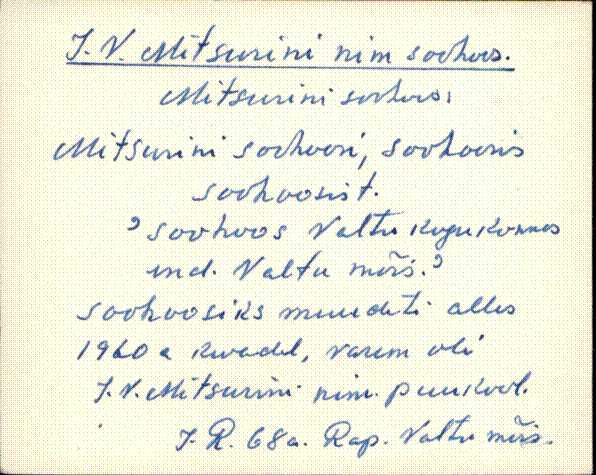 I. V. Mitsurini nim sovhoos.
Mitsurini sovhoos:
Mitsurini sovhoosi, sovhoosis
sovhoosist.
? sovhoos Valtu kogukonnas
end. Valtu mõis. ?
sovhoosiks muudeti alles
1960 a kevadel, varem oli
I. V. Mitsurini nim. puukool.
J. R. 68 a. Rap. Valtu mõis.